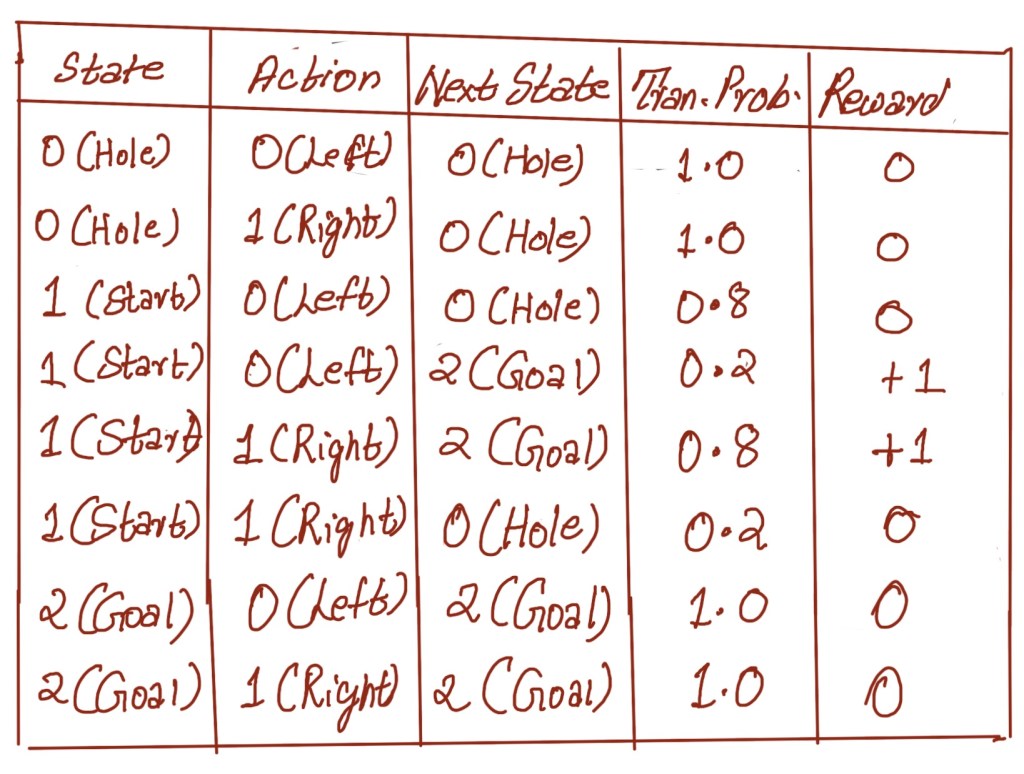 State Action Next State Tran. Prob. Reward
0 (Hole) 0 (Left) 0 (Hole) 1.0 0
0 (Hole) 1 (Right) 0 (Hole) 1.0 0
1 (Start) 0 (Left) 0 (Hole) 0.8 0
1 (Start) 0 (Left) 2 (Goal) 0.2 +1
1 (Start) 1 (Right) 2 (Goal) 0.8 +1
1 (Start) 1 (Right) 0 (Hole) 0.2 0
2 (Goal) 0 (Left) 2 (Goal) 1.0 0
2 (Goal) 1 (Right) 2 (Goal) 1.0 0